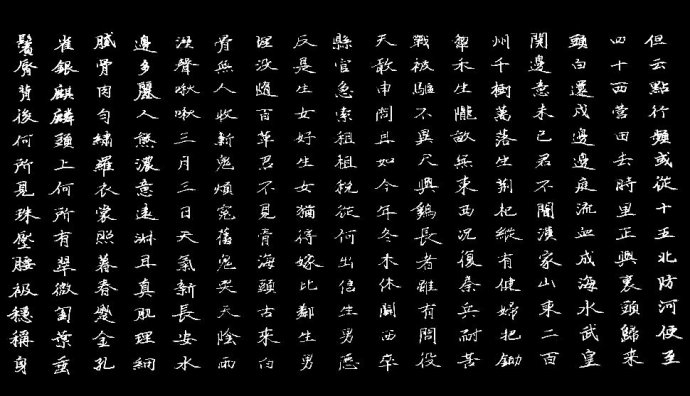 但云點行頻或從十五北防河便至
四十西營田去時里正與裹頭歸來
頭白還戍邊邊庭流血成海水武皇
開邊意未已君不聞漢家山東二百
州千樹萬落生荊杞縱有健婦把鋤
犁禾生隴畝無東西況復秦兵耐苦
戰被驅不異犬與雞長者雖有問役
夫敢申問且如今年冬未休關西卒
縣官急索租租稅從何出信生男惡
反是生女好生女猶得嫁比鄰生男
埋沒隨百草君不見青海頭古來白
骨無人收新鬼煩冤舊鬼哭天陰雨
溼聲啾啾三月三日天氣新長安水
邊多麗人態濃意遠淑且真肌理細
膩骨肉勻繡羅衣裳照暮春蹙金孔
雀銀麒麟頭上何所有翠微㔩葉垂
鬢脣背後何所見珠壓腰衱穩稱身